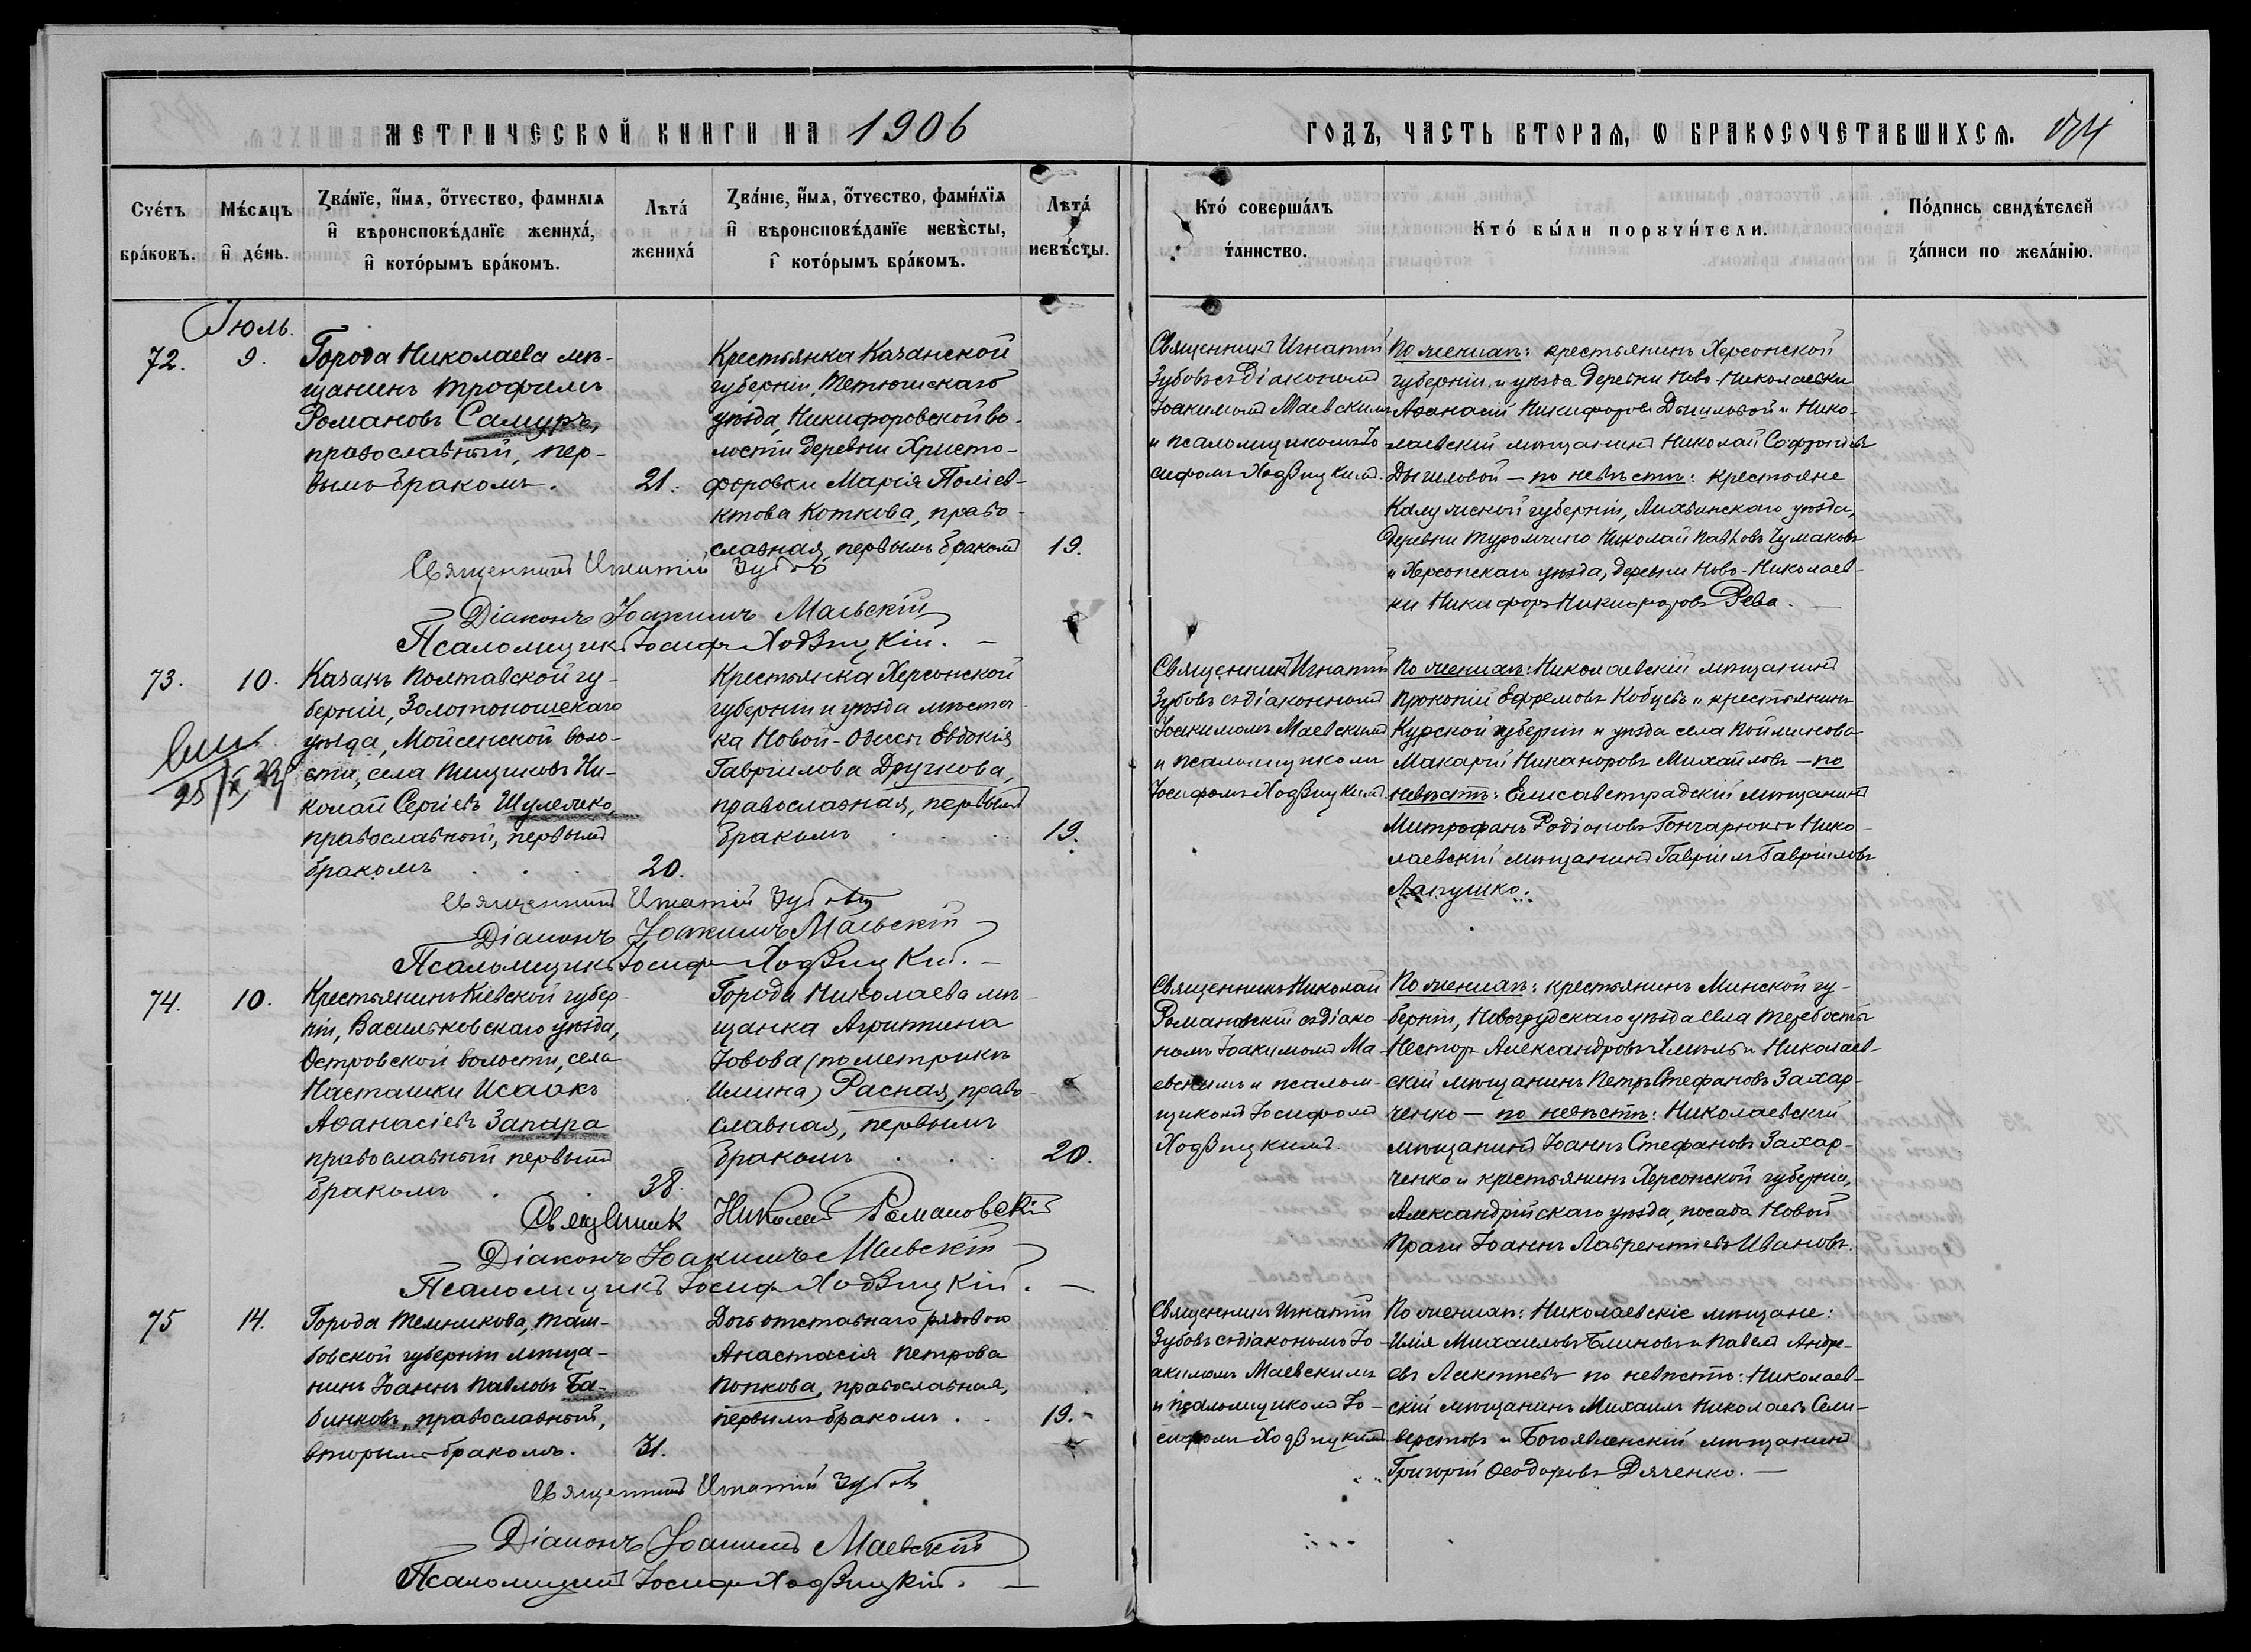 МЕТРИЧЕСКОЙ КНИГИ НА 1906
ГОДЪ, ЧАСТЬ ВТОРАЯ, Ѡ БРАКОСОЧЕТАВШИХСЯ.
Счетъ браковъ.
Мѣсяцъ и день.
Званїе, имя, отчество, фамилїя
и вѣроисповѣданїе жениха,
и которымъ бракомъ.
Лѣта
жениха
Званїе, имя, отчество, фамилїя
и вѣроисповѣданїе невѣсты,
и которымъ бракомъ.
Лѣта
невѣсты.
Кто совершалъ
таинство.
Кто были поручители.
Подпись свидѣтелей
записи по желанїю.
Іюль.
72.
9.
Города Николаева мѣ-
щанинъ Трофимъ
Романовъ Самуръ,
православный, пер-
вымъ бракомъ.
21.
Крестьянка Казанской
губерніи, Тетюшскаго
уѣзда, Никифоровской во-
лости деревни Христо-
форовки Марія Поліев-
ктова Коткова, право-
славная, первымъ бракомъ
19.
Священникъ Игнатій
Зубовъ съ діакономъ
Іоакимомъ Маевскимъ
и псаломщикомъ Іо-
сифомъ Ходзицкимъ.
По женихѣ: крестьянинъ Херсонской
губерніи и уѣзда деревни Ново-Николаевки
Аѳанасій Никифоровъ и Нико-
лаевскій мѣщанинъ Николай Софроніевъ
— по невѣстѣ: крестьяне
Калужской губерніи, Лихвинскаго уѣзда,
деревни Николай Павловъ Чумаковъ
и Херсонскаго уѣзда, деревни Ново-Николаев-
ки Никифоръ Никифоровъ Рева.
Священникъ Игнатій Зубовъ
Діаконъ Іоакимъ Маевскій
Псаломщикъ Іосифъ Ходзицкій.
73.
10.
Казакъ Полтавской гу-
берніи, Золотоношскаго
уѣзда, Мойсенской воло-
сти, села Пищиковъ Ни-
колай Сергіевъ Шулежко,
православный, первымъ
бракомъ
20.
Крестьянка Херсонской
губерніи и уѣзда мѣстеч-
ка Новой-Одессы Евдокія
Гавріилова Дручкова,
православная, первымъ
бракомъ
19.
Священникъ Игнатій
Зубовъ съ діакономъ
Іоакимомъ Маевскимъ
и псаломщикомъ
Іосифомъ Ходзицкимъ
По женихѣ: Николаевскій мѣщанинъ
Прокопій Ефремовъ Кобцевъ и крестьянинъ
Курской губерніи и уѣзда села
Макарій Никаноровъ Михайловъ — по
невѣстѣ: Елисаветградскій мѣщанинъ
Митрофанъ Родіоновъ Гончарюкъ и Нико-
лаевскій мѣщанинъ Гавріилъ Гавріиловъ
Лапушко.
Священникъ Игнатій Зубовъ
Діаконъ Іоакимъ Маевскій
Псаломщикъ Іосифъ Ходзицкій.
74.
10.
Крестьянинъ Кіевской губер-
ніи, Васильковскаго уѣзда,
Островской волости, села
Насташки Исаакъ
Аѳанасіевъ Запара
православный первымъ
бракомъ
38.
Города Николаева мѣ-
щанка Агриппина
Іовова (по метрикѣ
Ильина) Расная, право-
славная, первымъ
бракомъ
20.
Священникъ Николай
Романовскій съ діако-
номъ Іоакимомъ Ма-
евскимъ и псалом-
щикомъ Іосифомъ
Ходзицкимъ.
По женихѣ: крестьянинъ Минской гу-
берніи, Новогрудскаго уѣзда села
Несторъ Александровъ и Николаев-
скій мѣщанинъ Петръ Стефановъ Захар-
ченко — по невѣстѣ: Николаевскій
мѣщанинъ Іоаннъ Стефановъ Захар-
ченко и крестьянинъ Херсонской губерніи,
Александрійскаго уѣзда, посада Новой
Праги Іоаннъ Лаврентіевъ Ивановъ.
Священникъ Николай Романовскій
Діаконъ Іоакимъ Маевскій
Псаломщикъ Іосифъ Ходзицкій.
75
14.
Города Темникова, Там-
бовской губерніи мѣща-
нинъ Іоаннъ Павловъ Ба-
бинковъ, православный,
вторымъ бракомъ.
31.
Дочь отставнаго рядового
Анастасія Петрова
Попкова, православная,
первымъ бракомъ.
19.
Священникъ Игнатій
Зубовъ съ діакономъ Іо-
акимомъ Маевскимъ
и псаломщикомъ Іо-
сифомъ Ходзицкимъ
По женихѣ: Николаевскіе мѣщане:
Илія Михаиловъ Блиновъ и Павелъ Андре-
евъ Лактіевъ по невѣстѣ: Николаев-
скій мѣщанинъ Михаилъ Николаевъ Сели-
верстовъ и Богоявленскій мѣщанинъ
Григорій Ѳеодоровъ Дяченко.
Священникъ Игнатій Зубовъ
Діаконъ Іоакимъ Маевскій
Псаломщикъ Іосифъ Ходзицкій.